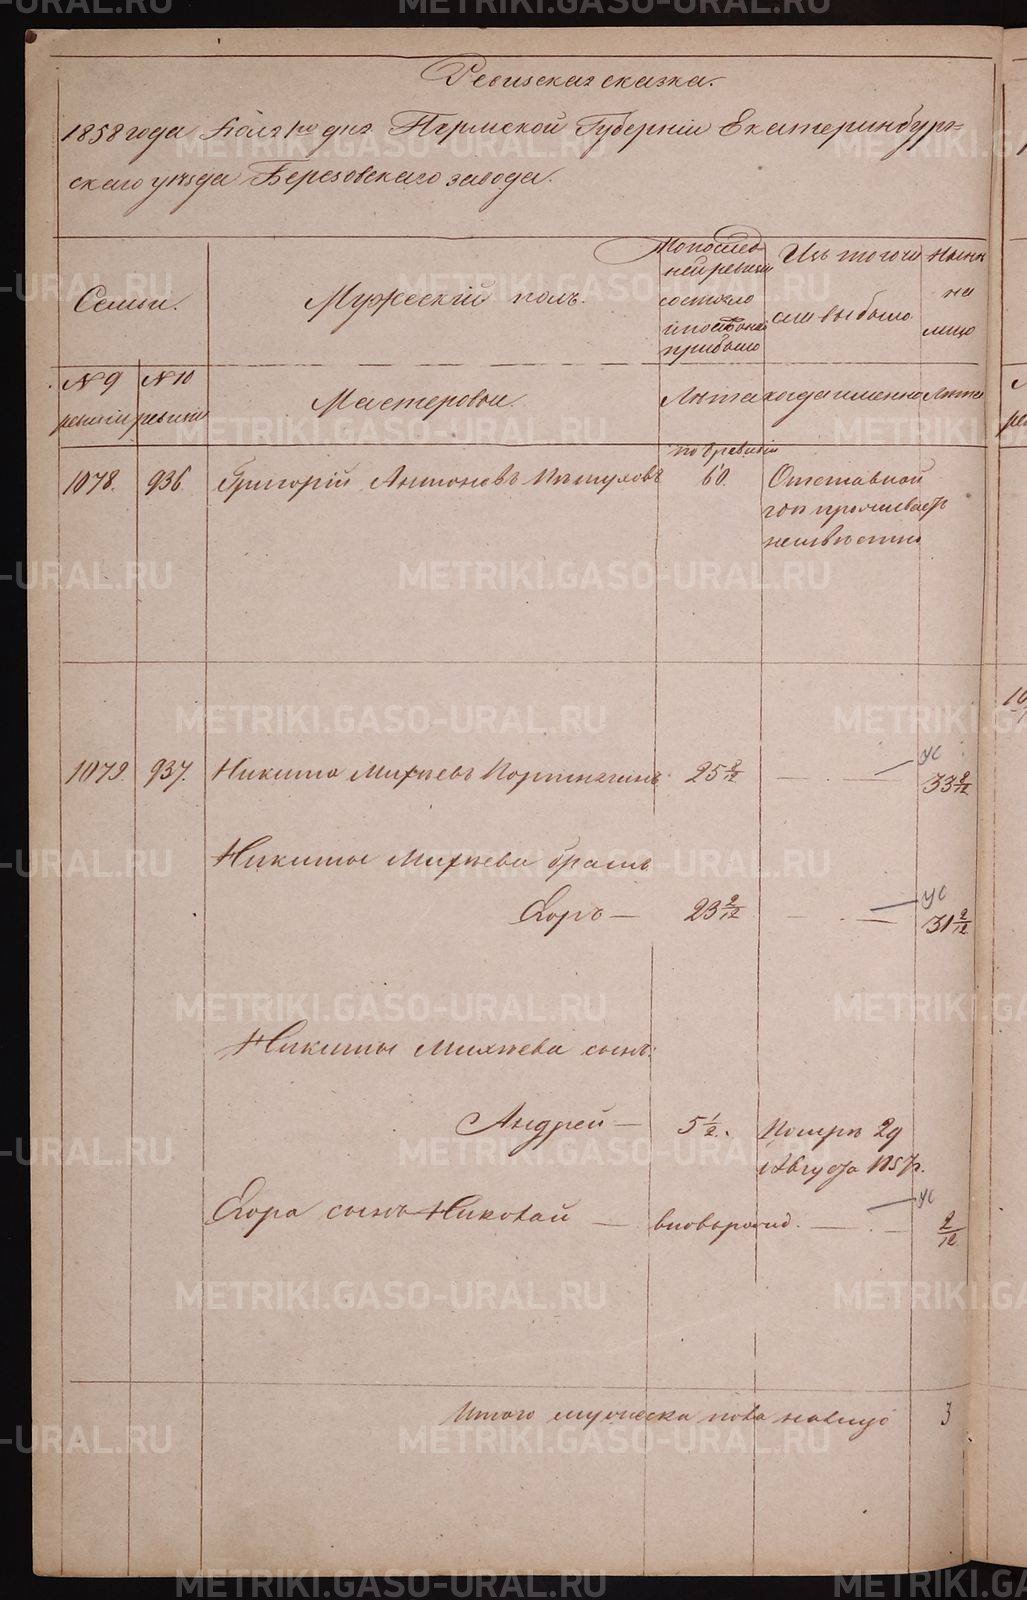 Ревизская сказка.
1858 года Іюля 1го дня Пермской Губерніи Екатеринбург-
скаго уѣзда Березовскаго завода.
Семьи.
Мужескій полъ.
По послед-
ней ревизіи
состояло
и после оной
прибыло
Изъ того числа
выбыло
Ныне
на
лицо
№ 9
ревизіи
№ 10
ревизіи
Мастеровые.
Лѣта
когда именно
Лѣта
1078.
936.
Григорій Антоновъ
по 9 ревизіи
60.
Отставной
где проживаетъ
неизвѣстно
1079.
937.
Никита Михѣевъ
25 2/12
33 2/12
Никиты Михѣева братъ
Егоръ —
23 2/12
31 2/12
Никиты Михѣева сынъ:
Андрей —
5 1/2.
Померъ 29
Августа 1857г.
Егора сынъ Николай —
вновьрожд.
2/12
Итого мужеска пола налицо
3
METRIKI.GASO-URAL.RU